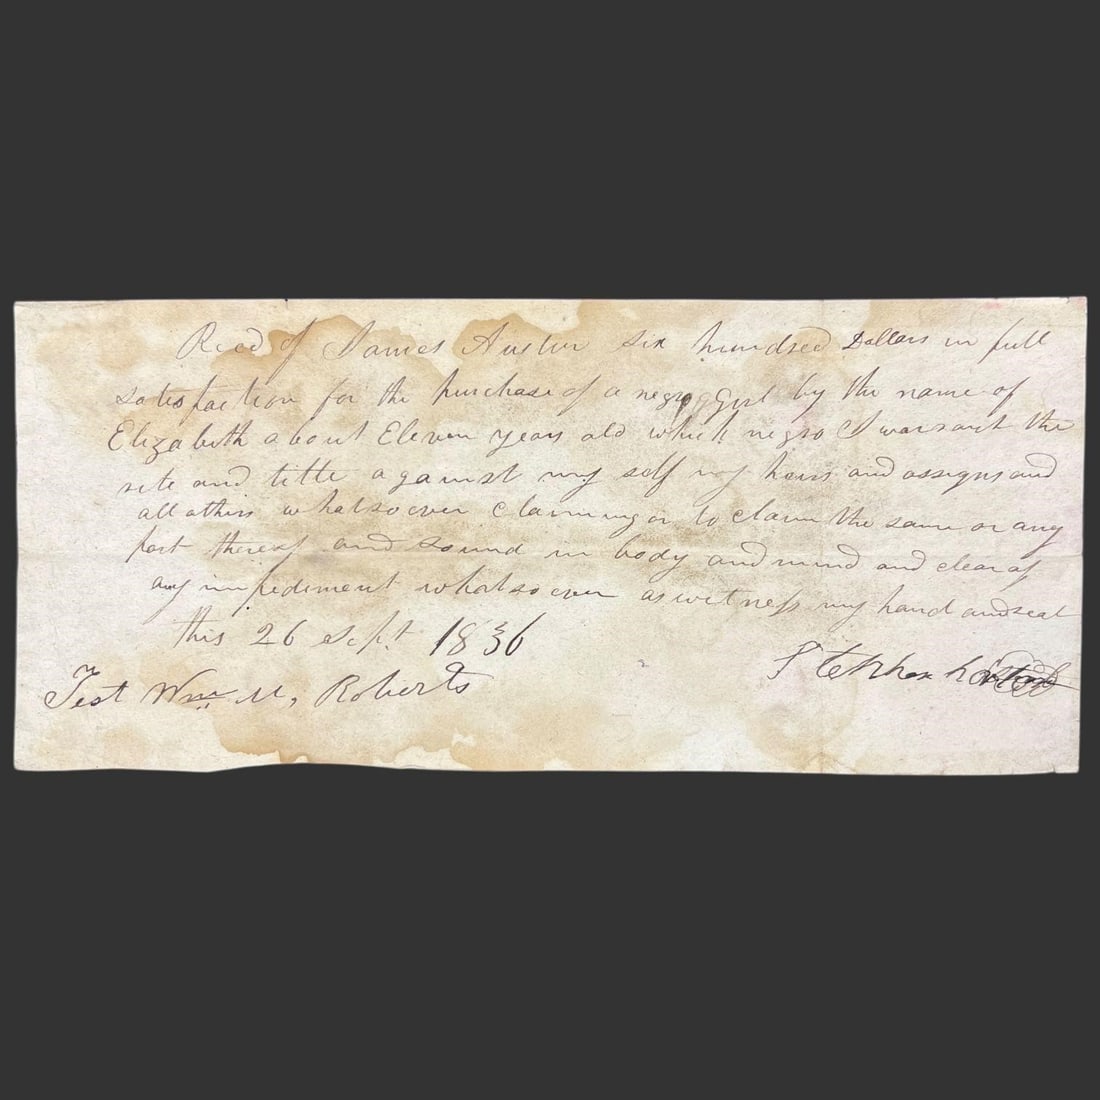 Recd of James Austin six hundred Dollars in full
satisfaction for the purchase of a negro Girl by the name of
Elizabeth about Eleven years old which negro I warrant the
rite and title against my self my heirs and assigns and
all others whatsoever claiming or to claim the same or any
part thereof and sound in body and mind and clear of
any impediment whatsoever as witness my hand and seal
this 26 Sept. 1836
Test Wm. M, Roberts
Stephen